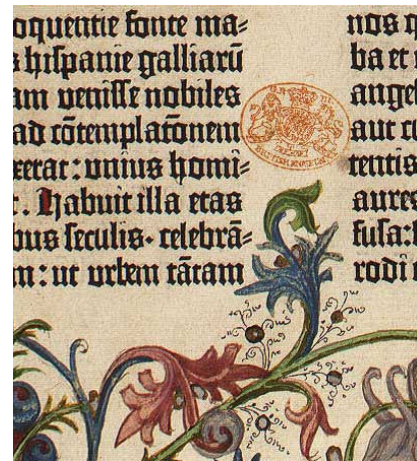 oquentie fonte ma-
hispanie galliarũ
am venisse nobiles
ad cõtemplatōnem
xerat: unius homi-
Habuit illa etas
bus seculis· celebrã-
m: ut urbem tãtam
nos
ba et
angel
aut
tentis
aures
fusa:
rodi